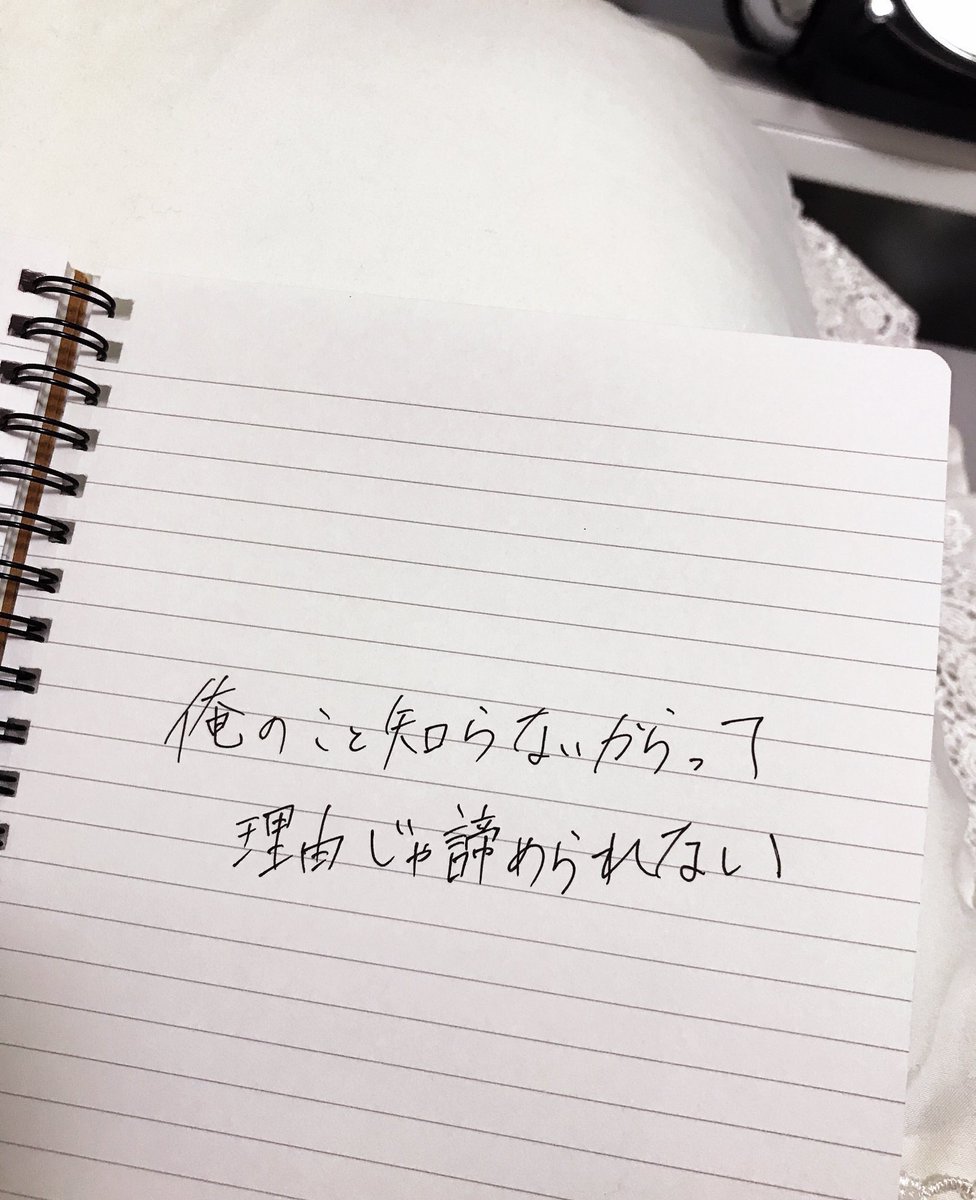 俺のこと知らないからって
理由じゃ諦められない